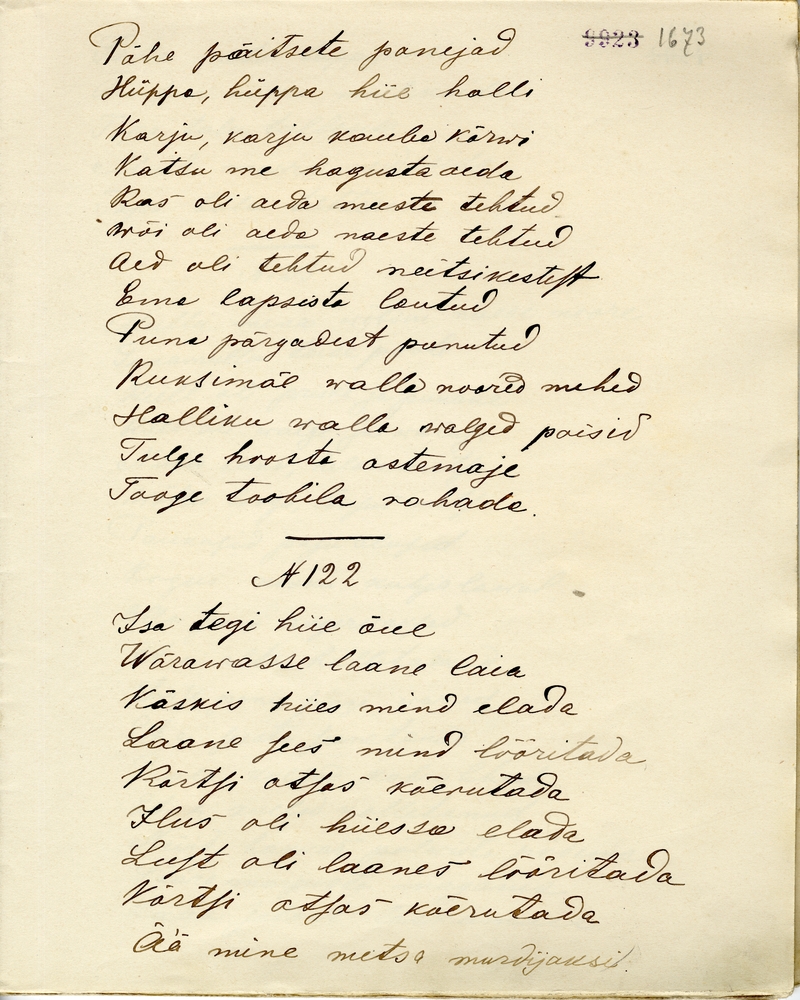 9923 1673
Pähe päitsete panejad
Hüppa, hüppa hiie halli
Karju, karju kauba kõrwi
Katsu me hagusta aeda
Kas oli aeda meeste tehtud
Wõi oli aeda naeste tehtud
Aed oli tehtud neitsikestest
Ema lapsista lautud
Puna pärgadest punutud
Kuksimäe walla noored mehed
Halliku walla walged poisid
Tulge hoosta ostemaje
Tooge toobila rahada.
N 122
Isa tegi hiie õue
Wärawasse laane laia
Käskis hiies mind elada
Laane sees mind lööritada
Kõrtsi otsas kõerutada
Ilus oli hiiessa elada
Lust oli laanes lööritada
Kõrtsi otsas kõerutada
Ää mine metsa murdijaksi!